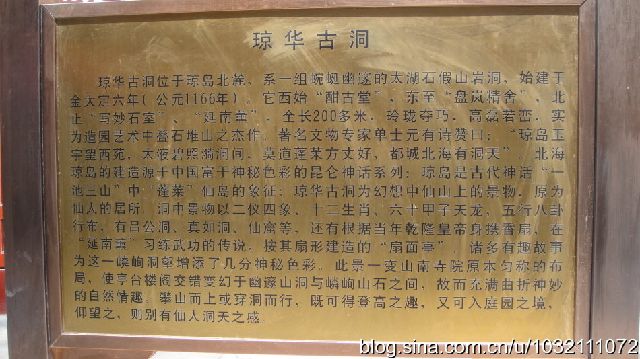 琼华古洞
琼华古洞位于琼岛北麓，系一组蜿蜒幽邃的太湖石假山岩洞，始建于
金大定六年（公元1166年）。它西始“酣古堂”、东至“盘岚精舍”、北
止“写妙石室”、“延南薰”。全长200多米，玲珑夺巧，高磊若峦，实
为造园艺术中叠石堆山之杰作。著名文物专家单士元有诗赞曰：“琼岛玉
宇望西苑，太液碧照漪涧间，莫道蓬莱方丈好，都城北海有洞天”。北海
琼岛的建造源于中国富于神秘色彩的昆仑神话系列：琼岛是古代神话“一
池三山”中“蓬莱”仙岛的象征；琼华古洞为幻想中仙山上的景物，原为
仙人的居所，洞中景物以二仪四象，十二生肖，六十甲子天龙，五行八卦
行布，有吕公洞、真如洞、仙窟等，还有根据当年乾隆皇帝身携香扇，在
“延南薰”习练武功的传说，按其扇形建造的“扇面亭”，诸多有趣故事
为这一嶙峋洞壑增添了几分神秘色彩。此景一变山南寺院原本匀称的布
局，使亭台楼阁交错变幻于幽邃山洞与嶙峋山石之间，故而充满曲折神妙
的自然情趣，攀山而上或穿洞而行，既可得登高之趣，又可入庭园之境，
仰望之，则别有仙人洞天之感。
blog.sina.com.cn/u/1032111072